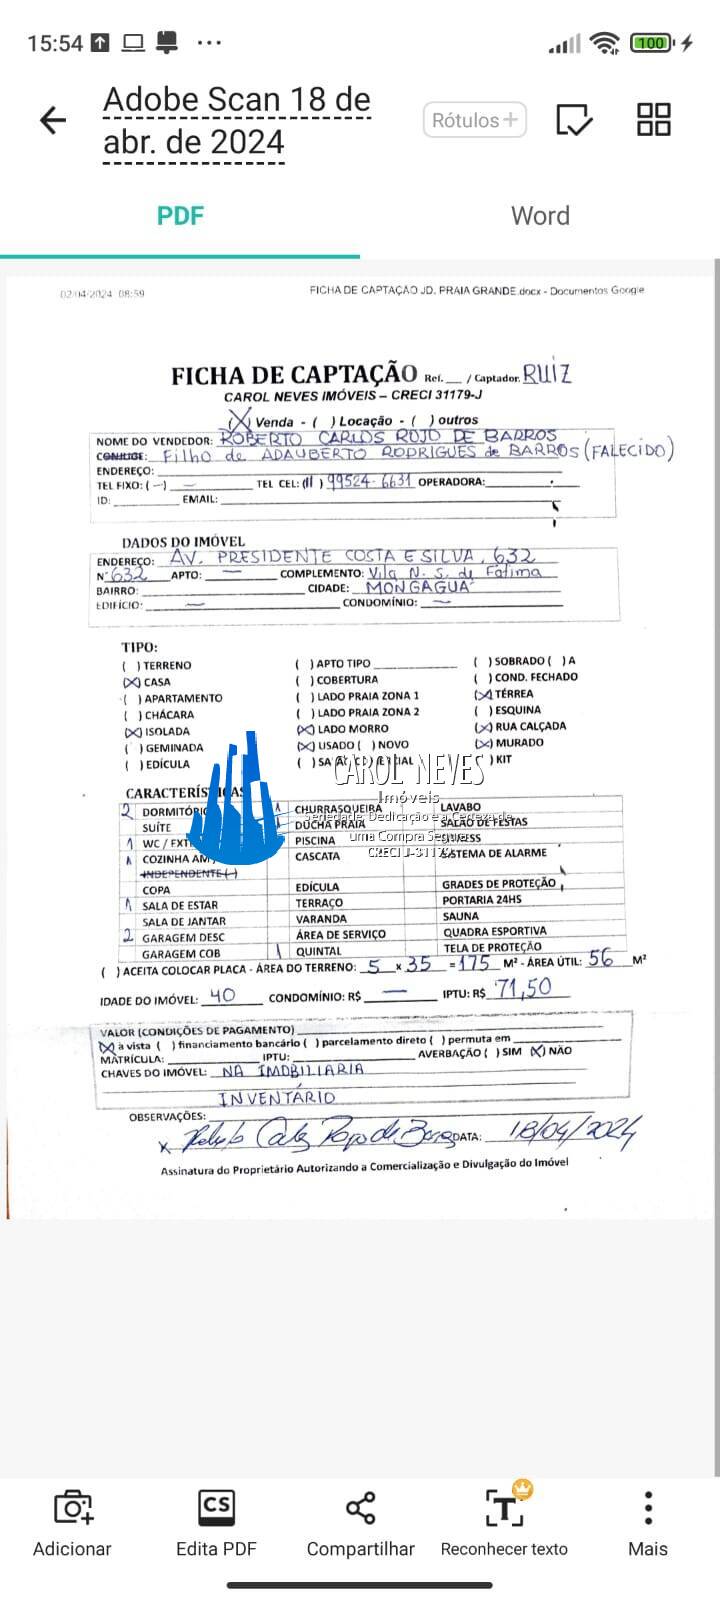 15:54 ... 100
Adobe Scan 18 de
abr. de 2024
Rótulos+
PDF Word
02/04/2024 08:59 FICHA DE CAPTAÇÃO JD. PRAIA GRANDE.docx - Documentos Google
FICHA DE CAPTAÇÃO Ref.__ / Captador. RUIZ
CAROL NEVES IMÓVEIS – CRECI 31179-J
(X) Venda - ( ) Locação - ( ) outros
NOME DO VENDEDOR: ROBERTO CARLOS ROJO DE BARROS
CONJUGE: Filho de ADAUBERTO RODRIGUES de BARROS (FALECIDO)
ENDEREÇO:
TEL FIXO: (-) — TEL CEL: (11) 99524-6631 OPERADORA:
ID: EMAIL:
DADOS DO IMÓVEL
ENDEREÇO: AV. PRESIDENTE COSTA E SILVA, 632
Nº 632 APTO: — COMPLEMENTO: Vila N. S. de Fátima
BAIRRO: CIDADE: MONGAGUÁ
EDIFÍCIO: — CONDOMÍNIO: —
TIPO:
( ) TERRENO ( ) APTO TIPO ( ) SOBRADO ( ) A
(X) CASA ( ) COBERTURA ( ) COND. FECHADO
( ) APARTAMENTO ( ) LADO PRAIA ZONA 1 (X) TÉRREA
( ) CHÁCARA ( ) LADO PRAIA ZONA 2 ( ) ESQUINA
(X) ISOLADA (X) LADO MORRO (X) RUA CALÇADA
( ) GEMINADA (X) USADO ( ) NOVO (X) MURADO
( ) EDÍCULA ( ) ) KIT
CAROL NEVES
Imóveis
Seriedade, Dedicação e a Certeza de
uma Compra Segura
CRECI J-31179
CARACTERÍSTICAS
2 DORMITÓRIO CHURRASQUEIRA LAVABO
SUÍTE DUCHA PRAIA SALÃO DE FESTAS
1 WC / EXT PISCINA
COZINHA AM CASCATA SISTEMA DE ALARME
INDEPENDENTE (-)
COPA EDÍCULA GRADES DE PROTEÇÃO
1 SALA DE ESTAR TERRAÇO PORTARIA 24HS
SALA DE JANTAR VARANDA SAUNA
2 GARAGEM DESC ÁREA DE SERVIÇO QUADRA ESPORTIVA
GARAGEM COB 1 QUINTAL TELA DE PROTEÇÃO
( ) ACEITA COLOCAR PLACA - ÁREA DO TERRENO: 5 x 35 = 175 M² - ÁREA ÚTIL: 56 M²
IDADE DO IMÓVEL: 40 CONDOMÍNIO: R$ — IPTU: R$ 71,50
VALOR (CONDIÇÕES DE PAGAMENTO)
(X) à vista ( ) financiamento bancário ( ) parcelamento direto ( ) permuta em
MATRÍCULA: IPTU: AVERBAÇÃO ( ) SIM (X) NÃO
CHAVES DO IMÓVEL: NA IMOBILIARIA
INVENTÁRIO
OBSERVAÇÕES:
x DATA: 18/04/2024
Assinatura do Proprietário Autorizando a Comercialização e Divulgação do Imóvel
CS T
Adicionar Edita PDF Compartilhar Reconhecer texto Mais